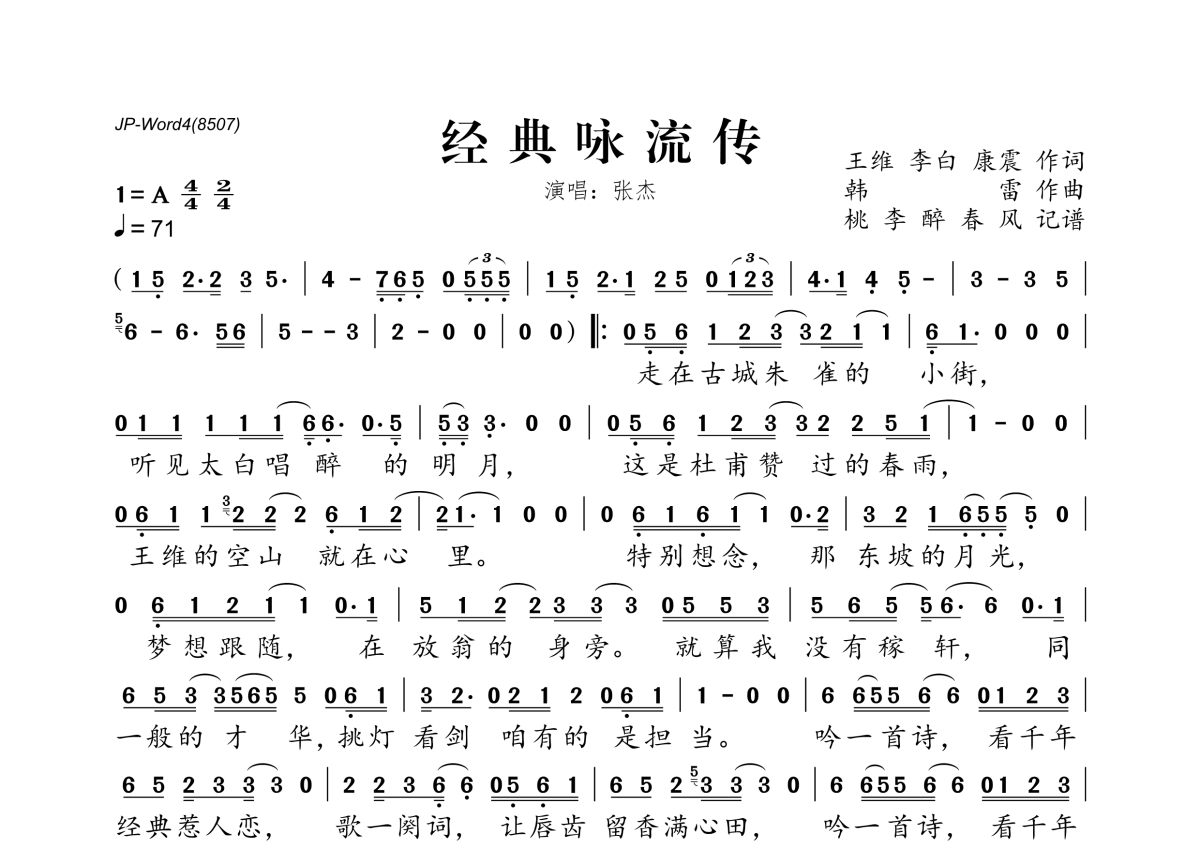 JP-Word4(8507)
经典咏流传
王维 李白 康震 作词
1= A 4/4 2/4
演唱：张杰
韩 雷 作曲
♩= 71
桃李醉春风 记谱
( 1 5 2· 2 3 5· | 4 - 7 6 5 0 5 5 5 | 1 5 2· 1 2 5 0 1 2 3 | 4· 1 4 5 - | 3 - 3 5 |
5 6 - 6· 5 6 | 5 - - 3 | 2 - 0 0 | 0 0 ) ‖: 0 5 6 1 2 3 3 2 1 1 | 6 1· 0 0 0 |
走在古城朱 雀的 小街，
0 1 1 1 1 1 6 6· 0· 5 | 5 3 3· 0 0 | 0 5 6 1 2 3 3 2 2 5 1 | 1 - 0 0 |
听见太白唱 醉 的 明 月， 这是杜甫赞 过的春雨，
0 6 1 1 3 2 2 2 6 1 2 | 2 1· 1 0 0 | 0 6 1 6 1 1 0· 2 | 3 2 1 6 5 5 5 0 |
王维的空山 就在心 里。 特别想念， 那 东坡的月光，
0 6 1 2 1 1 0· 1 | 5 1 2 2 3 3 3 0 5 5 3 | 5 6 5 5 6· 6 0· 1 |
梦想跟随， 在 放翁的 身旁。 就算我 没有稼 轩， 同
6 5 3 3 5 6 5 5 0 6 1 | 3 2· 0 2 1 2 0 6 1 | 1 - 0 0 | 6 6 5 5 6 6 0 1 2 3 |
一般的 才 华，挑灯 看剑 咱有的 是担 当。 吟一首诗， 看千年
6 5 2 3 3 3 0 | 2 2 3 6 6 0 5 6 1 | 6 5 2 5 3 3 3 0 | 6 6 5 5 6 6 0 1 2 3 |
经典惹人恋， 歌一阕词， 让唇齿 留香满心田， 吟一首诗， 看千年